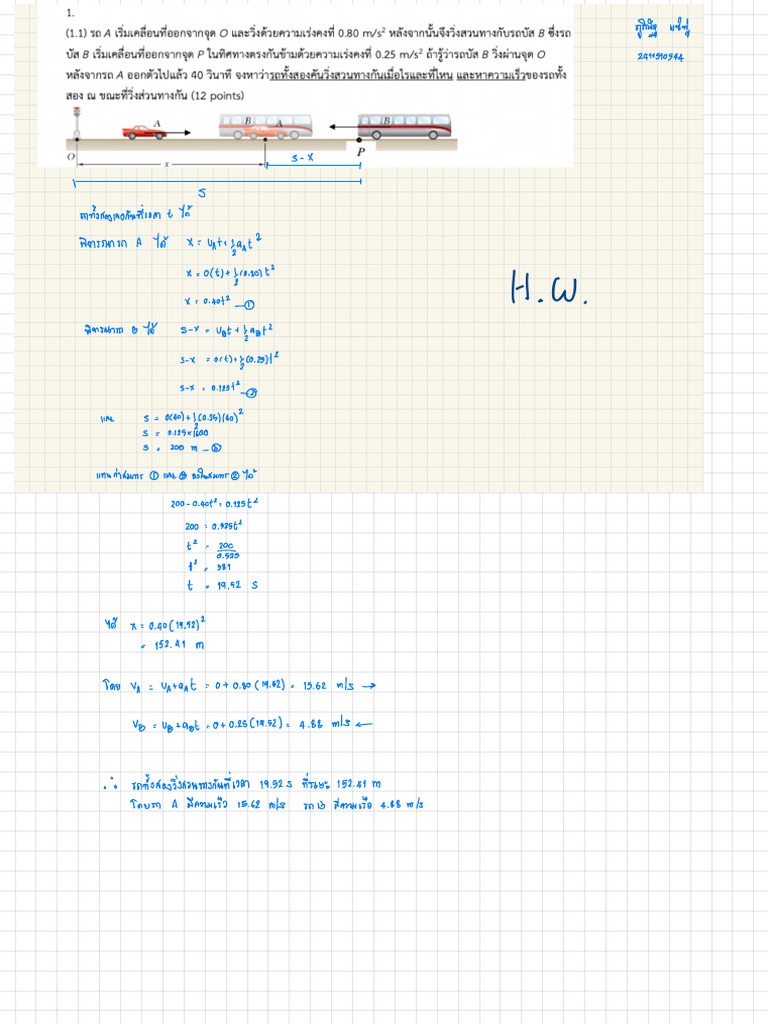 1.
(1.1) รถ A เริ่มเคลื่อนที่ออกจากจุด O และวิ่งด้วยความเร่งคงที่ 0.80 m/s² หลังจากนั้นจึงวิ่งสวนทางกับรถบัส B ซึ่งรถ
บัส B เริ่มเคลื่อนที่ออกจากจุด P ในทิศทางตรงกันข้ามด้วยความเร่งคงที่ 0.25 m/s² ถ้ารู้ว่ารถบัส B วิ่งผ่านจุด O
หลังจากรถ A ออกตัวไปแล้ว 40 วินาที จงหาว่ารถทั้งสองคันวิ่งสวนทางกันเมื่อไรและที่ไหน และหาความเร็วของรถทั้ง
สอง ณ ขณะที่วิ่งส่วนทางกัน (12 points)
A B A B
O x S-x P
S
H.W.
รถทั้งสองเจอกันที่เวลา t ได้
พิจารณารถ A ได้ x = u_A t + 1/2 a_A t²
x = 0(t) + 1/2 (0.80) t²
x = 0.40t² —①
พิจารณารถ B ได้ S-x = u_B t + 1/2 a_B t²
S-x = 0(t) + 1/2 (0.25)t²
S-x = 0.125t² —②
และ S = 0(40) + 1/2 (0.25)(40)²
S = 0.125 x 1600
S = 200 m —③
แทนค่าสมการ ① และ ③ ลงในสมการ ② ได้
200 - 0.40t² = 0.125t²
200 = 0.525t²
t² = 200/0.525
t² = 381
t = 19.52 S
ได้ x = 0.40(19.52)²
= 152.41 m
โดย V_A = u_A + a_A t = 0 + 0.80 (19.52) = 15.62 m/s →
V_B = u_B + a_B t = 0 + 0.25 (19.52) = 4.88 m/s ←
∴ รถทั้งสองวิ่งสวนทางกันที่เวลา 19.52 S ที่ระยะ 152.41 m
โดยรถ A มีความเร็ว 15.62 m/s รถ B มีความเร็ว 4.88 m/s